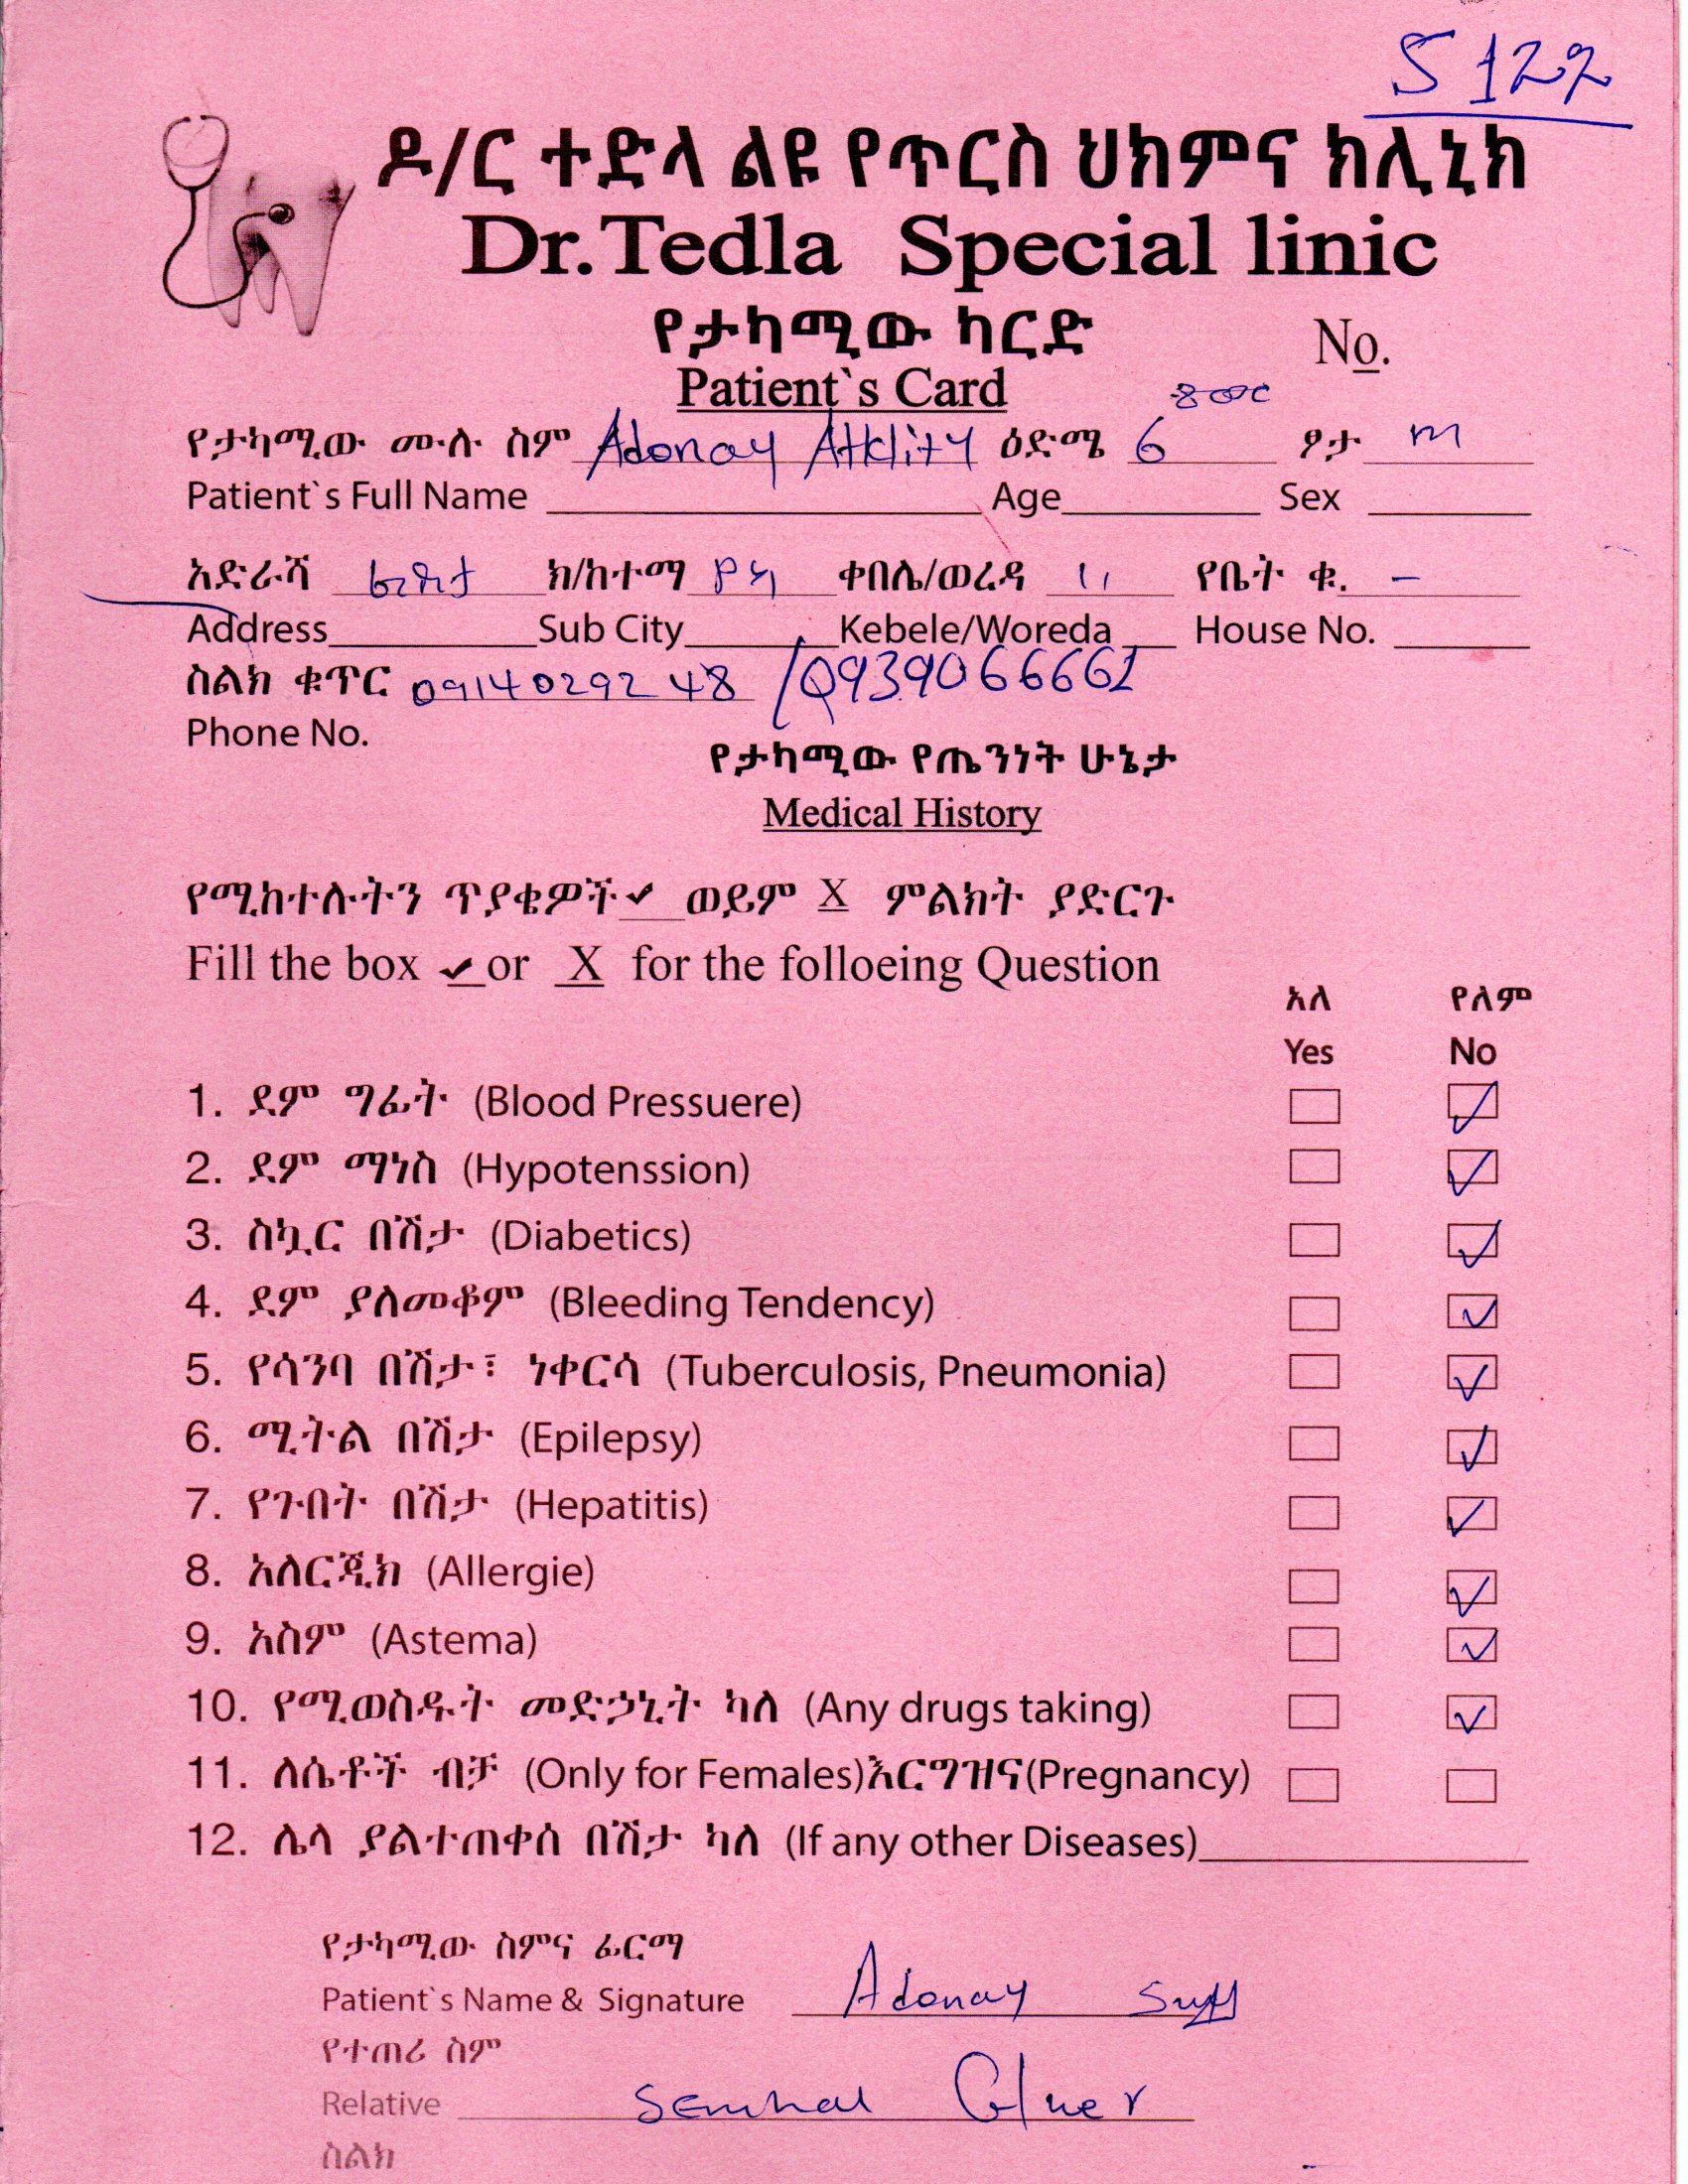 S 122
ዶ/ር ተድላ ልዩ የጥርስ ህክምና ክሊኒክ
Dr.Tedla Special linic
የታካሚው ካርድ
No.
Patient`s Card
የታካሚው ሙሉ ስም Adonay Atklity ዕድሜ 6 ፆታ m
Patient`s Full Name Age Sex
አድራሻ ክ/ከተማ የካ ቀበሌ/ወረዳ 11 የቤት ቁ. –
Address Sub City Kebele/Woreda House No.
ስልክ ቁጥር 0914029248 /0939066661
Phone No.
የታካሚው የጤንነት ሁኔታ
Medical History
የሚከተሉትን ጥያቄዎች ✓ ወይም X ምልክት ያድርጉ
Fill the box ✓ or X for the folloeing Question
አለ የለም
Yes No
1. ደም ግፊት (Blood Pressuere) ✓
2. ደም ማነስ (Hypotenssion) ✓
3. ስኳር በሽታ (Diabetics) ✓
4. ደም ያለመቆም (Bleeding Tendency) ✓
5. የሳንባ በሽታ፣ ነቀርሳ (Tuberculosis, Pneumonia) ✓
6. ሚትል በሽታ (Epilepsy) ✓
7. የጉበት በሽታ (Hepatitis) ✓
8. አለርጂክ (Allergie) ✓
9. አስም (Astema) ✓
10. የሚወስዱት መድኃኒት ካለ (Any drugs taking) ✓
11. ለሴቶች ብቻ (Only for Females)እርግዝና(Pregnancy)
12. ሌላ ያልተጠቀሰ በሽታ ካለ (If any other Diseases)
የታካሚው ስምና ፊርማ
Patient`s Name & Signature Adonay
የተጠሪ ስም
Relative Semhal
ስልክ